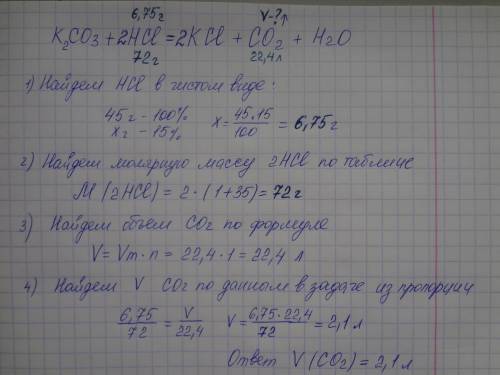 6,75г V-?↑
K₂CO₃ + 2HCl = 2KCl + CO₂ + H₂O
72г 22,4л
1) Найдем HCl в чистом виде:
45г - 100% x = 45·15/100 = 6,75г
xг - 15%
2) Найдем молярную массу 2HCl по таблице
M (2HCl) = 2·(1+35) = 72г
3) Найдем объем CO₂ по формуле
V = Vm·n = 22,4·1 = 22,4 л
4) Найдем V CO₂ по данным в задаче из пропорции
6,75/72 = V/22,4 V = 6,75·22,4/72 = 2,1л
Ответ V (CO₂) = 2,1л